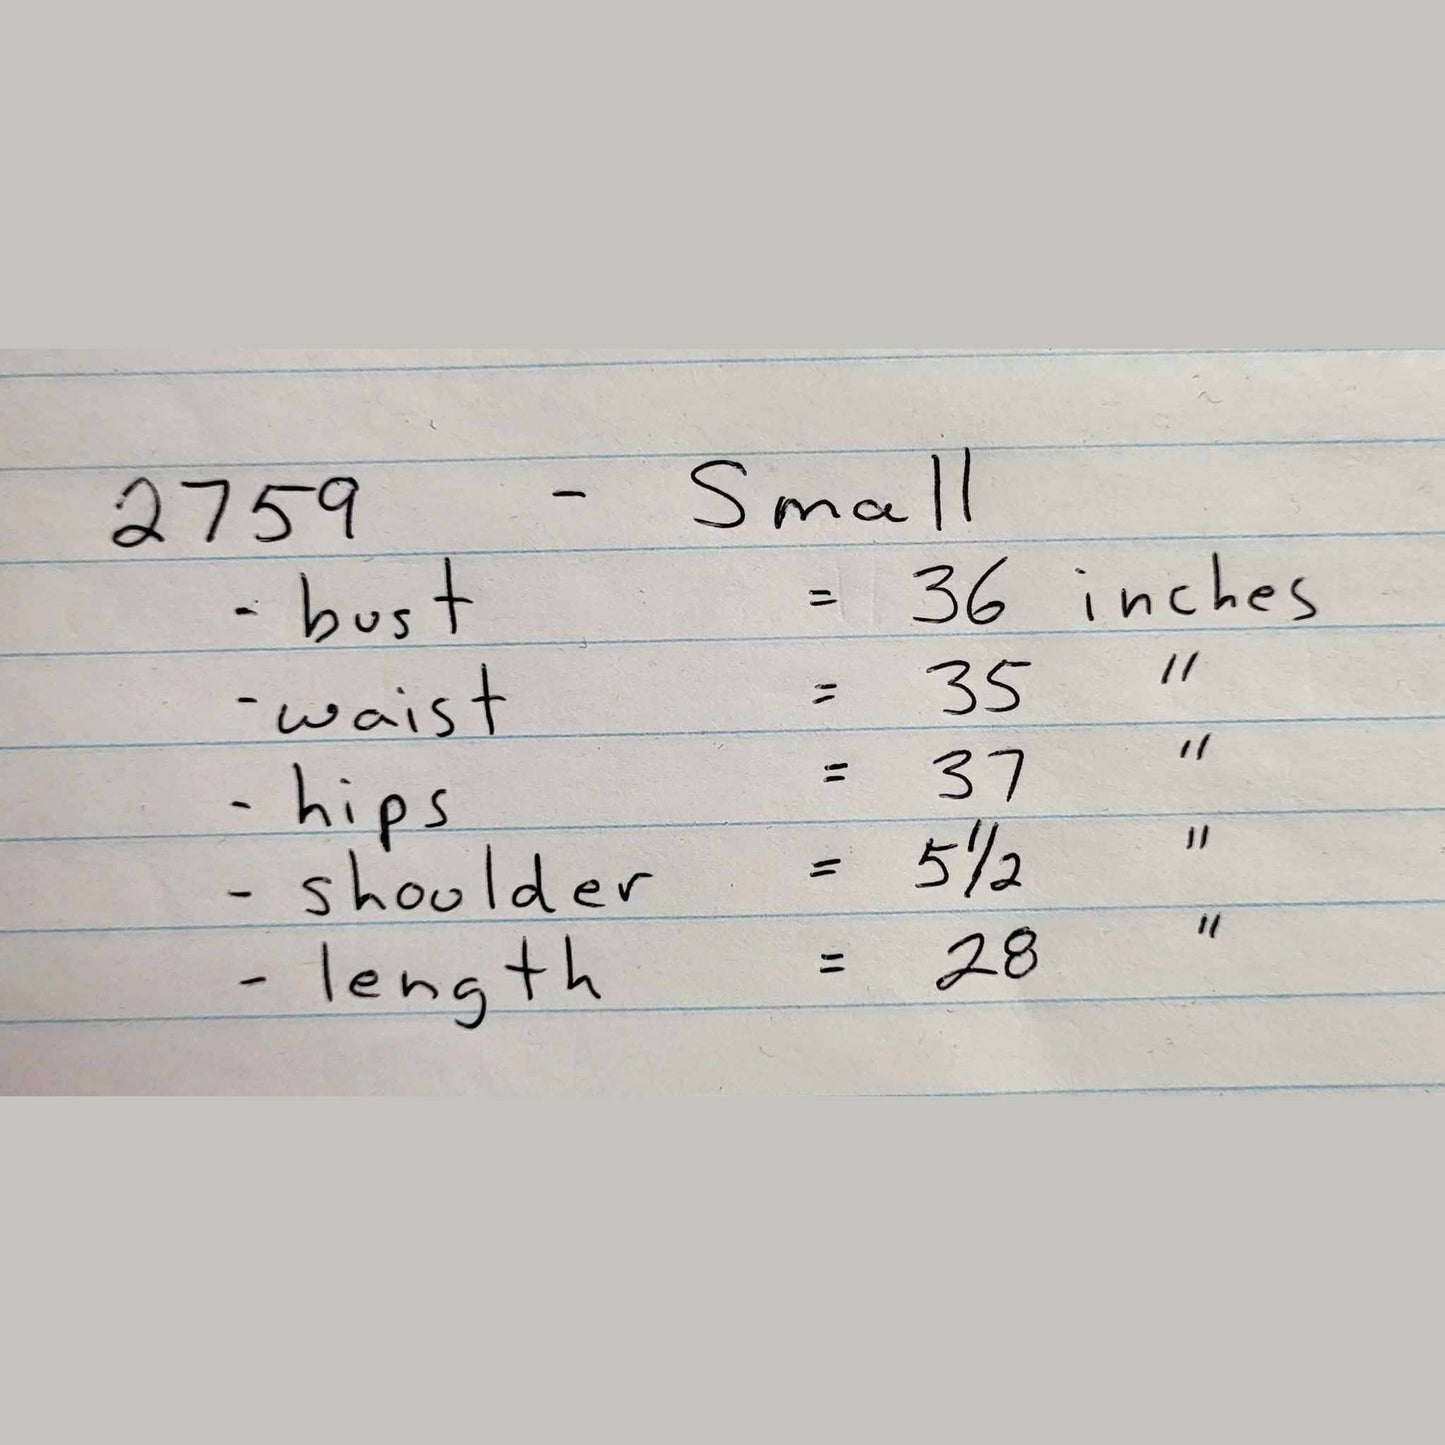 2759 - Small
- bust = 36 inches
- waist = 35 "
- hips = 37 "
- shoulder = 5 1/2 "
- length = 28 "